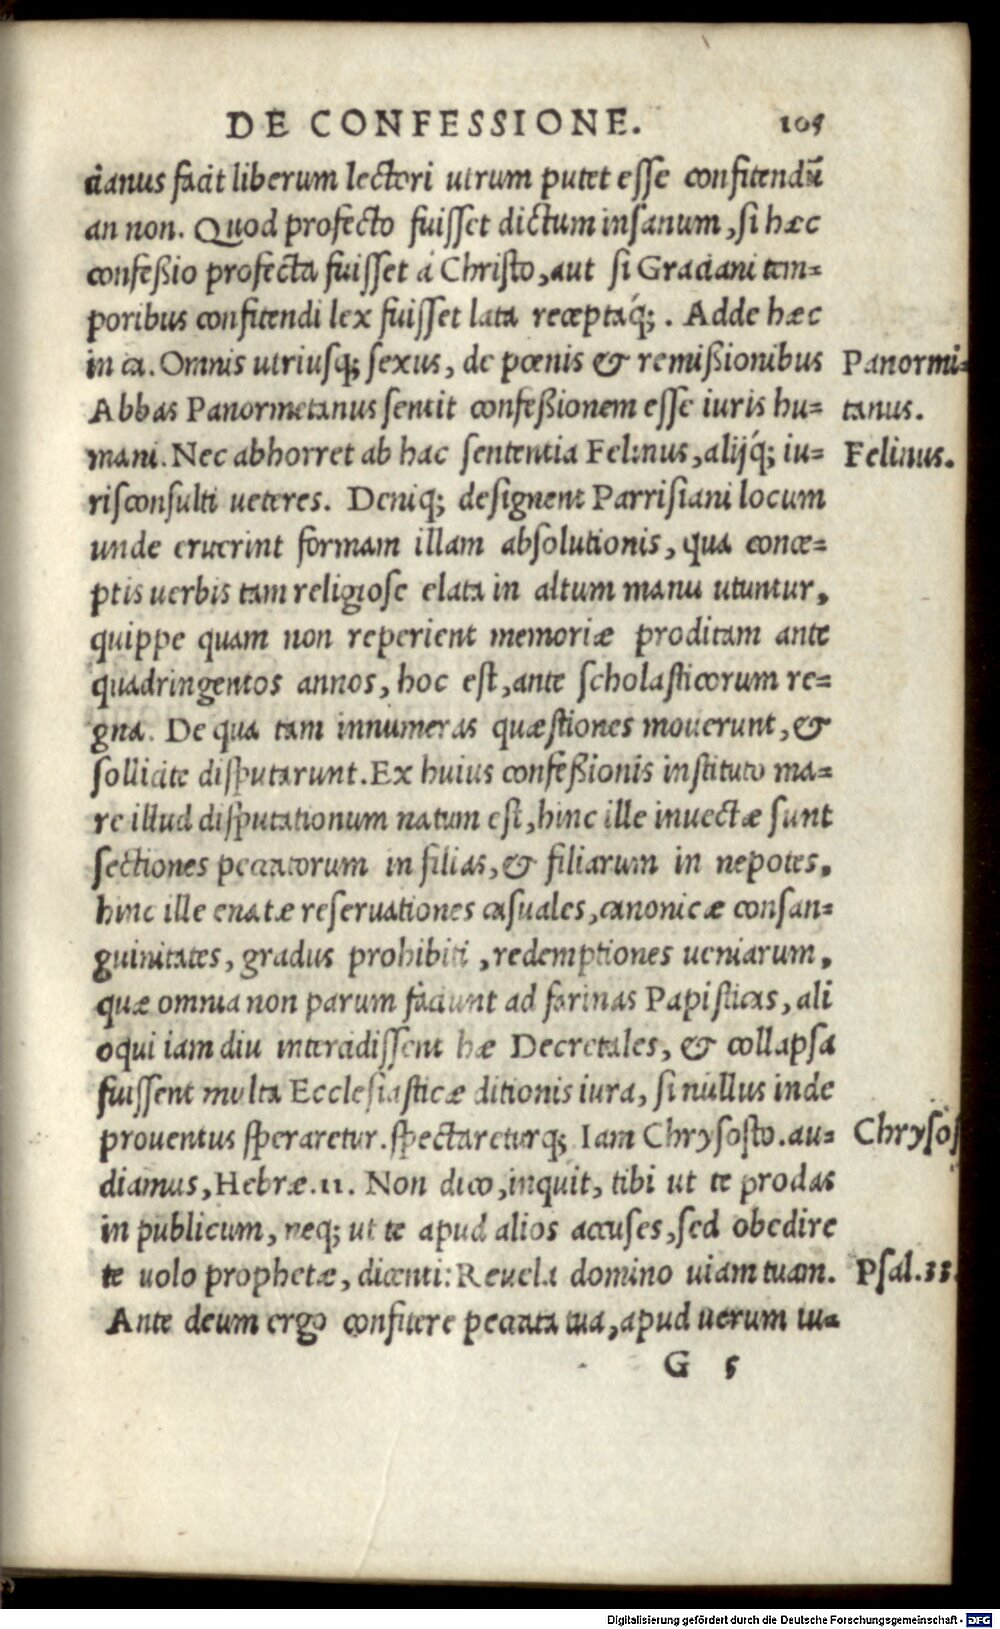 DE CONFESSIONE. 105
cianus facit liberum lectori utrum putet esse confitendū
an non. Quod profecto fuisset dictum insanum, si hæc
confeßio profecta fuisset á Christo, aut si Graciani tem=
poribus confitendi lex fuisset lata receptaq́;. Adde hæc
in ca. Omnis utriusq; sexus, de pœnis & remißionibus Panormi=
Abbas Panormetanus sentit confeßionem esse iuris hu= tanus.
mani. Nec abhorret ab hac sententia Felinus, alijq́; iu= Felinus.
risconsulti ueteres. Deniq; designent Parrisiani locum
unde eruerint formam illam absolutionis, qua conce=
ptis uerbis tam religiose elata in altum manu utuntur,
quippe quam non reperient memoriæ proditam ante
quadringentos annos, hoc est, ante scholasticorum re=
gna. De qua tam innumeras quæstiones mouerunt, &
sollicite disputarunt. Ex huius confeßionis instituto ma=
re illud disputationum natum est, hinc ille inuectæ sunt
sectiones peccatorum in filias, & filiarum in nepotes,
hinc ille enatæ reseruationes casuales, canonicæ consan=
guinitates, gradus prohibiti, redemptiones ueniarum,
quæ omnia non parum faciunt ad farinas Papisticas, ali
oqui iam diu intercidissent hæ Decretales, & collapsa
fuissent multa Ecclesiasticæ ditionis iura, si nullus inde
prouentus speraretur. spectareturq; Iam Chrysosto. au= Chrysos
diamus, Hebræ. 11. Non dico, inquit, tibi ut te prodas
in publicum, neq; ut te apud alios accuses, sed obedire
te uolo prophetæ, dicenti: Reuela domino uiam tuam. Psal. 33.
Ante deum ergo confitere peccata tua, apud uerum iu=
G 5
Digitalisierung gefördert durch die Deutsche Forschungsgemeinschaft - DFG